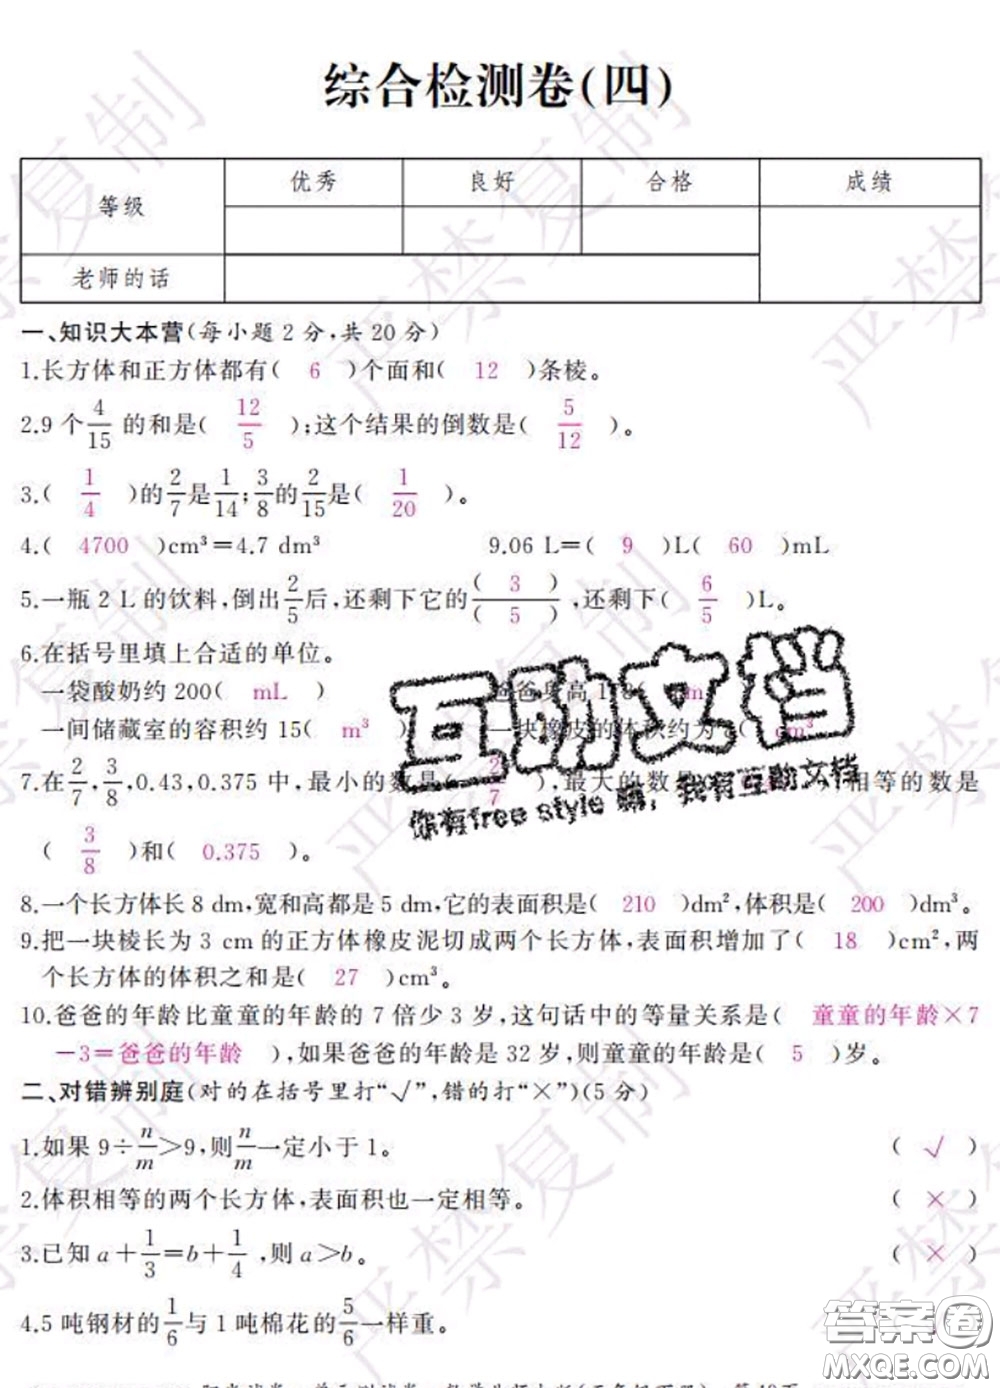 综合检测卷(四)
等级 优秀 良好 合格 成绩
老师的话
一、知识大本营(每小题2分,共20分)
1.长方体和正方体都有( 6 )个面和( 12 )条棱。
2.9个4/15的和是( 12/5 );这个结果的倒数是( 5/12 )。
3.( 1/4 )的2/7是1/14;3/8的2/15是( 1/20 )。
4.( 4700 )cm³=4.7 dm³ 9.06 L=( 9 )L( 60 )mL
5.一瓶2 L的饮料,倒出2/5后,还剩下它的( 3 )/( 5 ),还剩下( 6/5 )L。
6.在括号里填上合适的单位。
一袋酸奶约200( mL ) 爸爸身高1.8( m
一间储藏室的容积约15( m³ ) 一块橡皮的体积约为 ( cm³
7.在2/7,3/8,0.43,0.375中,最小的数是( 2/7 ),最大的数是 相等的数是
( 3/8 )和( 0.375 )。
8.一个长方体长8 dm,宽和高都是5 dm,它的表面积是( 210 )dm²,体积是( 200 )dm³。
9.把一块棱长为3 cm的正方体橡皮泥切成两个长方体,表面积增加了( 18 )cm²,两
个长方体的体积之和是( 27 )cm³。
10.爸爸的年龄比童童的年龄的7倍少3岁,这句话中的等量关系是( 童童的年龄×7
-3=爸爸的年龄 ),如果爸爸的年龄是32岁,则童童的年龄是( 5 )岁。
二、对错辨别庭(对的在括号里打“√”,错的打“×”)(5分)
1.如果9÷n/m>9,则n/m一定小于1。 ( √ )
2.体积相等的两个长方体,表面积也一定相等。 ( × )
3.已知a+1/3=b+1/4,则a>b。 ( × )
4.5吨钢材的1/6与1吨棉花的5/6一样重。
互助文档
你有free style嘛,我有互助文档
严禁复制
严禁复制
答案圈
MXQE.COM